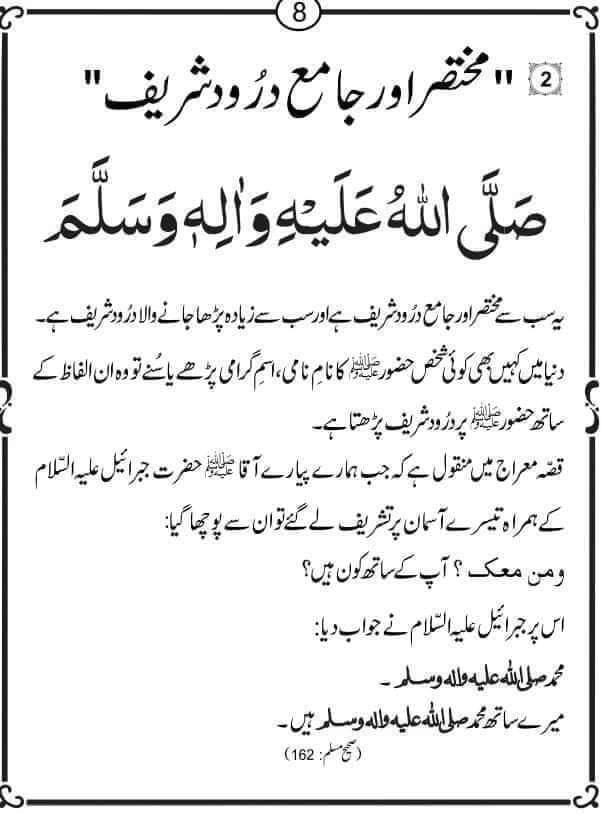 8
2 "مختصر اور جامع درُود شریف"
صَلَّی اللهُ عَلَیْهِ وَاٰلِهٖ وَسَلَّمَ
یہ سب سے مختصر اور جامع درُود شریف ہے اور سب سے زیادہ پڑھا جانے والا درُود شریف ہے۔
دنیا میں کہیں بھی کوئی شخص حضور ﷺ کا نامِ نامی، اسمِ گرامی پڑھے یا سُنے تو وہ ان الفاظ کے
ساتھ حضور ﷺ پر درُود شریف پڑھتا ہے۔
قصّہ معراج میں منقول ہے کہ جب ہمارے پیارے آقا ﷺ حضرت جبرائیل علیہ السّلام
کے ہمراہ تیسرے آسمان پر تشریف لے گئے تو ان سے پوچھا گیا:
ومن معک ؟ آپ کے ساتھ کون ہیں؟
اس پر جبرائیل علیہ السّلام نے جواب دیا:
محمد صلی الله علیه واله وسلم ۔
میرے ساتھ محمد صلی الله علیه واله وسلم ہیں۔
(صحیح مسلم: 162)